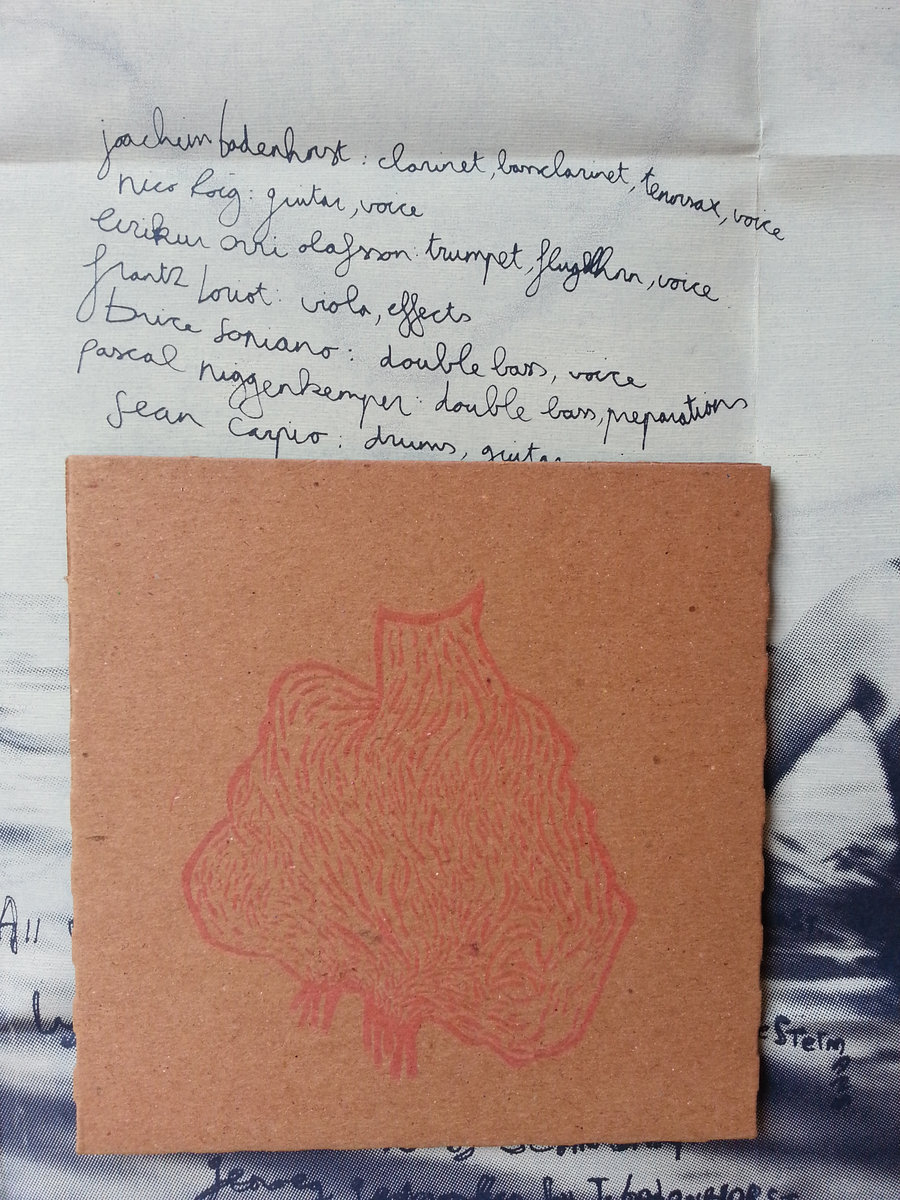 joachim badenhorst : clarinet, bassclarinet, tenorsax, voice
nico Roig : guitar, voice
Eirikur orri olafsson : trumpet, flugelhorn, voice
frantz loriot : viola, effects
brice soniano : double bass, voice
pascal niggenkemper : double bass, preparations
sean carpio : drums, guitar
All